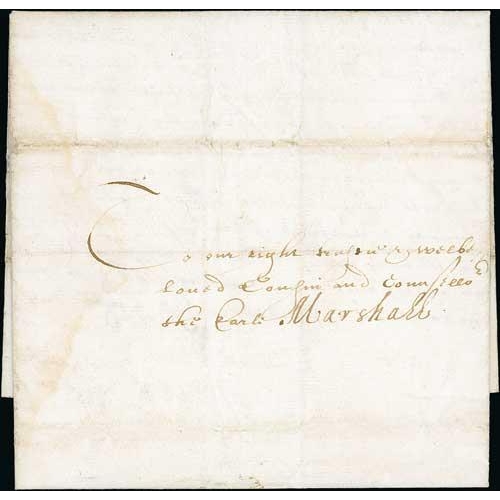 To our right trustie & welbe
loved Cousin and Counsello.r
the Earle Marshall